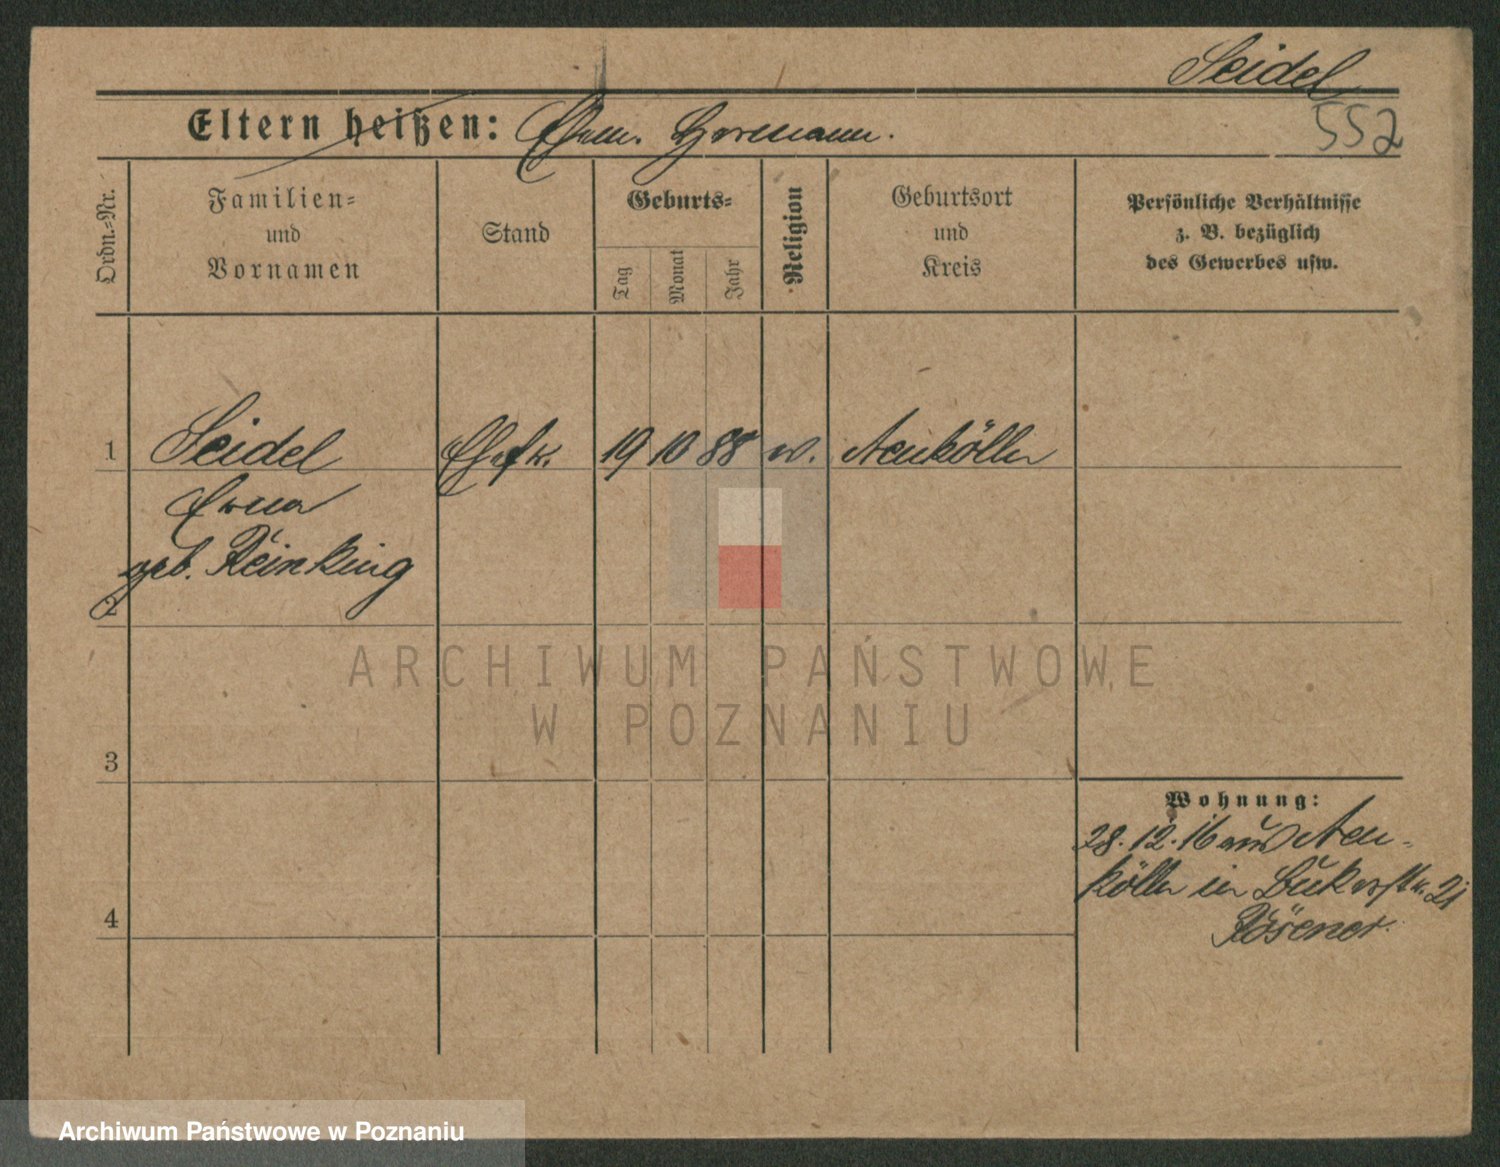 Seidel
552
Eltern heißen: Ehem. Hermann.
Ordn.-Nr.
Familien-
und
Vornamen
Stand
Geburts-
Tag
Monat
Jahr
Religion
Geburtsort
und
Kreis
Persönliche Verhältnisse
z. B. bezüglich
des Gewerbes usw.
1 Seidel Ehefr. 19 10 88 ev. Neukölln
Erna
geb. Reinking
2
ARCHIWUM PAŃSTWOWE
W POZNANIU
3
Wohnung:
28.12.16 aus Neu-
kölln in Bukerstr. 21
Rösener.
4
Archiwum Państwowe w Poznaniu